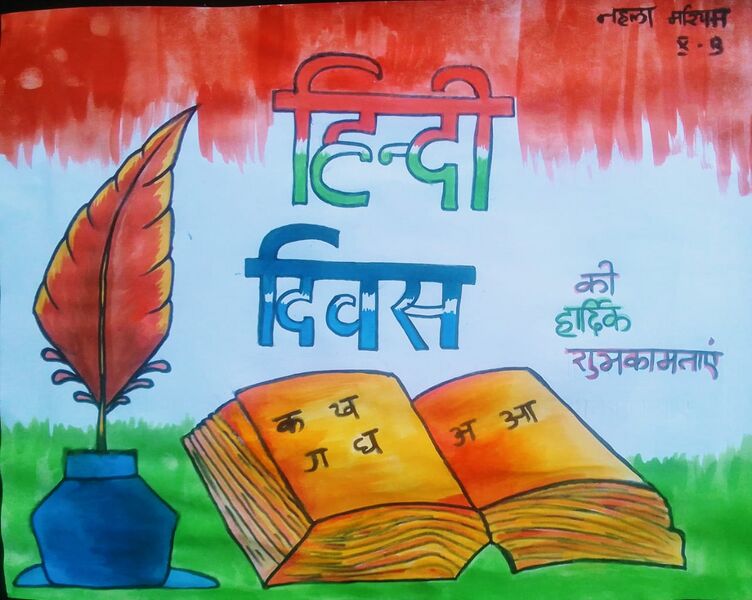 नहला मरियम
हिन्दी
दिवस
की
हार्दिक
शुभकामनाएं
क ख
ग घ
अ आ